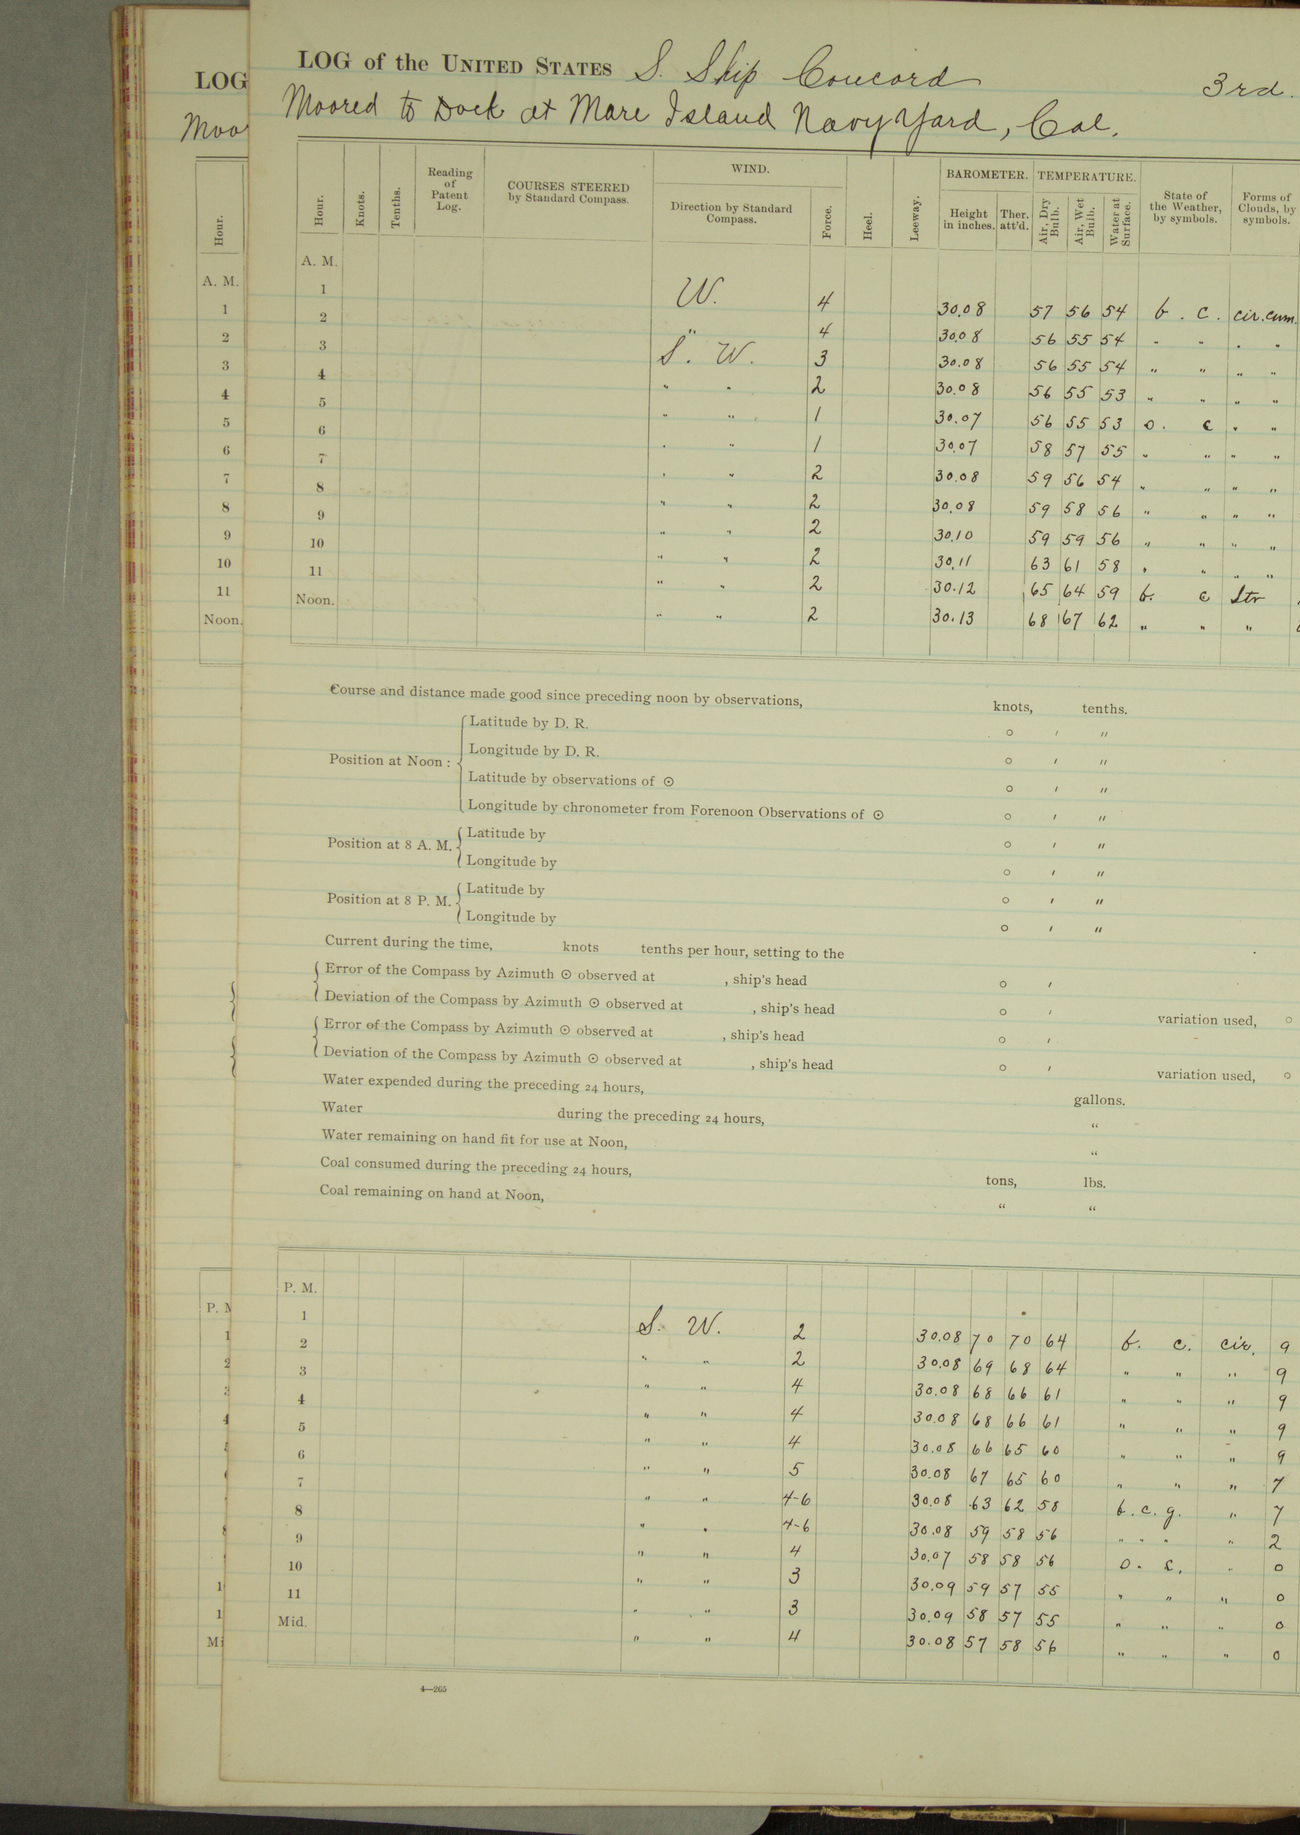 LOG of the UNITED STATES S. Ship Concord 3rd.
Moored to Dock at Mare Island Navy Yard, Cal.
Hour. Knots. Tenths. Reading of Patent Log. COURSES STEERED by Standard Compass. WIND. Direction by Standard Compass. Force. Heel. Leeway. BAROMETER. Height in inches. Ther. att'd. TEMPERATURE. Air, Dry Bulb. Air, Wet Bulb. Water at Surface. State of the Weather, by symbols. Forms of Clouds, by symbols.
A. M.
1 W. 4 30.08 57 56 54 b. c. cir. cum.
2 " 4 30.08 56 55 54 " " " "
3 S. W. 3 30.08 56 55 54 " " " "
4 " " 2 30.08 56 55 53 " " " "
5 " " 1 30.07 56 55 53 o. c " "
6 " " 1 30.07 58 57 55 " " " "
7 " " 2 30.08 59 56 54 " " " "
8 " " 2 30.08 59 58 56 " " " "
9 " " 2 30.10 59 59 56 " " " "
10 " " 2 30.11 63 61 58 " " " "
11 " " 2 30.12 65 64 59 b. c Str
Noon. " " 2 30.13 68 67 62 " " "
Course and distance made good since preceding noon by observations, knots, tenths.
Position at Noon :
Latitude by D. R. ° ′ ″
Longitude by D. R. ° ′ ″
Latitude by observations of ☉ ° ′ ″
Longitude by chronometer from Forenoon Observations of ☉ ° ′ ″
Position at 8 A. M.
Latitude by ° ′ ″
Longitude by ° ′ ″
Position at 8 P. M.
Latitude by ° ′ ″
Longitude by ° ′ ″
Current during the time, knots tenths per hour, setting to the
Error of the Compass by Azimuth ☉ observed at , ship's head ° ′
Deviation of the Compass by Azimuth ☉ observed at , ship's head ° ′ variation used, °
Error of the Compass by Azimuth ☉ observed at , ship's head ° ′
Deviation of the Compass by Azimuth ☉ observed at , ship's head ° ′ variation used, °
Water expended during the preceding 24 hours, gallons.
Water during the preceding 24 hours, "
Water remaining on hand fit for use at Noon, "
Coal consumed during the preceding 24 hours, tons, lbs.
Coal remaining on hand at Noon, " "
P. M.
1 S. W. 2 30.08 70 70 64 b. c. cir. 9
2 " " 2 30.08 69 68 64 " " " 9
3 " " 4 30.08 68 66 61 " " " 9
4 " " 4 30.08 68 66 61 " " " 9
5 " " 4 30.08 66 65 60 " " " 9
6 " " 5 30.08 67 65 60 " " " 7
7 " " 4-6 30.08 63 62 58 b. c. g. " 7
8 " " 4-6 30.08 59 58 56 " " " " 2
9 " " 4 30.07 58 58 56 o. c. " 0
10 " " 3 30.09 59 57 55 " " " 0
11 " " 3 30.09 58 57 55 " " " 0
Mid. " " 4 30.08 57 58 56 " " " 0
4—265
LOG
Hour.
A. M.
1
2
3
4
5
6
7
8
9
10
11
Noon.